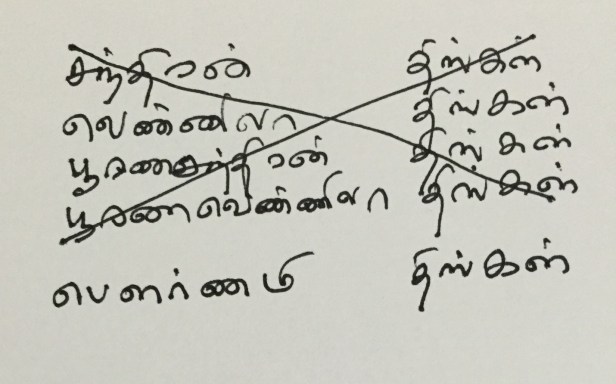 சந்திரன் திங்கள்
வெண்ணிலா திங்கள்
பூரணசந்திரன் திங்கள்
பூரணவெண்ணிலா திங்கள்
பௌர்ணமி திங்கள்